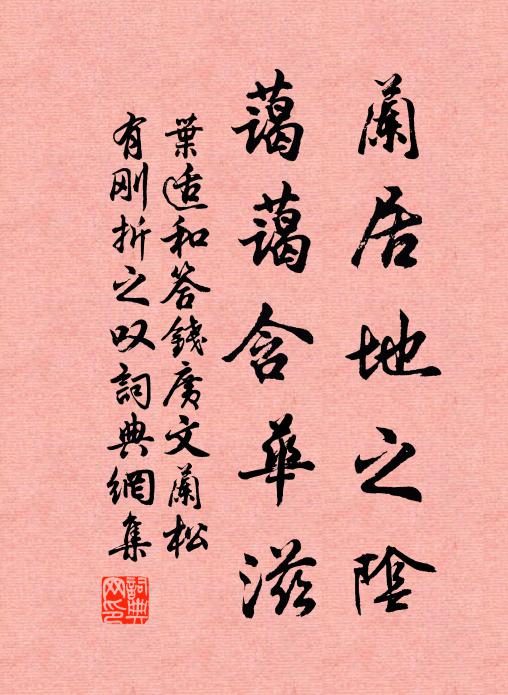 蘭居地之陰
藹藹含華滋
葉适和答錢廣文蘭松
有剛折之叹詞典網集
詞典网印